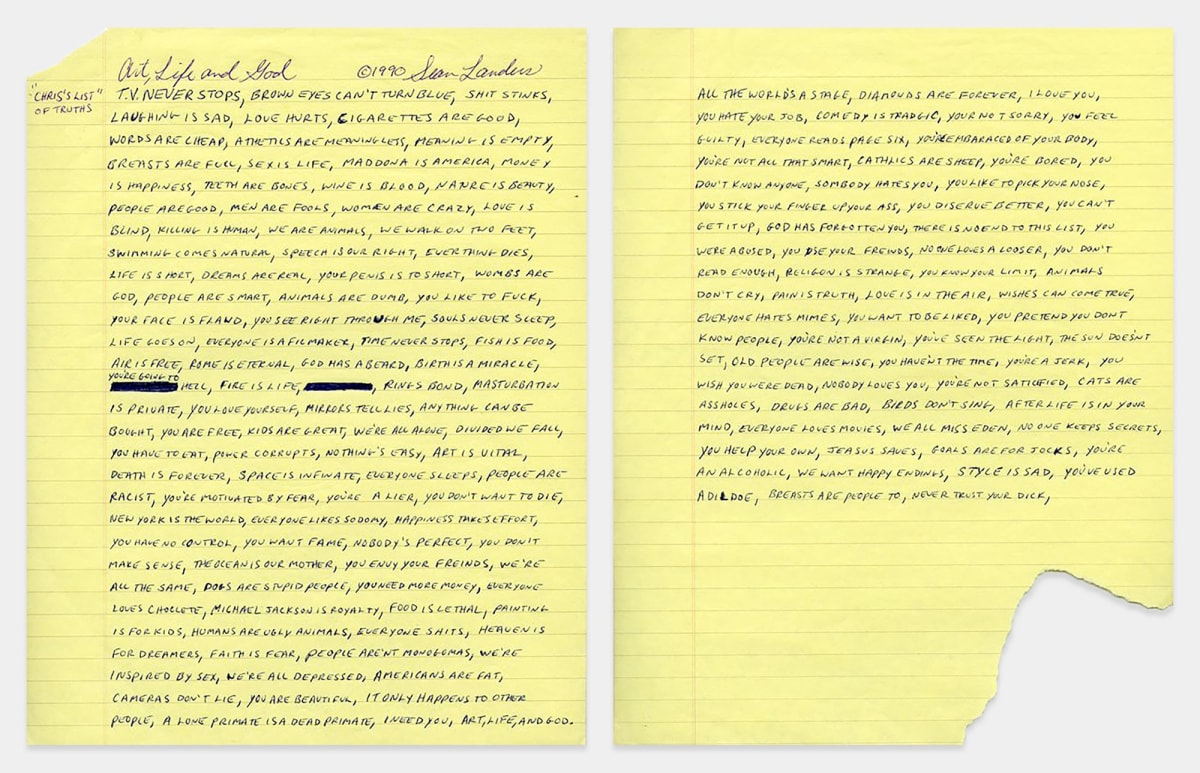 Art, Life and God ©1990 Sean Landers
"CHRIS'S LIST"
OF TRUTHS
T.V. NEVER STOPS, BROWN EYES CAN'T TURN BLUE, SHIT STINKS,
LAUGHING IS SAD, LOVE HURTS, CIGARETTES ARE GOOD,
WORDS ARE CHEAP, ATHETICS ARE MEANINGLESS, MEANING IS EMPTY,
BREASTS ARE FULL, SEX IS LIFE, MADDONA IS AMERICA, MONEY
IS HAPPINESS, TEETH ARE BONES, WINE IS BLOOD, NATURE IS BEAUTY,
PEOPLE ARE GOOD, MEN ARE FOOLS, WOMEN ARE CRAZY, LOVE IS
BLIND, KILLING IS HUMAN, WE ARE ANIMALS, WE WALK ON TWO FEET,
SWIMMING COMES NATURAL, SPEECH IS OUR RIGHT, EVERTHING DIES,
LIFE IS SHORT, DREAMS ARE REAL, YOUR PENIS IS TO SHORT, WOMBS ARE
GOD, PEOPLE ARE SMART, ANIMALS ARE DUMB, YOU LIKE TO FUCK,
YOUR FACE IS FLAWD, YOU SEE RIGHT THROUGH ME, SOULS NEVER SLEEP,
LIFE GOES ON, EVERYONE IS A FILMAKER, TIME NEVER STOPS, FISH IS FOOD,
AIR IS FREE, ROME IS ETERNAL, GOD HAS A BEARD, BIRTH IS A MIRACLE,
YOU'RE GOING TO
HELL, FIRE IS LIFE, RINGS BOND, MASTURBATION
IS PRIVATE, YOU LOVE YOURSELF, MIRRORS TELL LIES, ANYTHING CAN BE
BOUGHT, YOU ARE FREE, KIDS ARE GREAT, WE'RE ALL ALONE, DIVIDED WE FALL,
YOU HAVE TO EAT, POWER CORRUPTS, NOTHING'S EASY, ART IS VITAL,
DEATH IS FOREVER, SPACE IS INFINATE, EVERYONE SLEEPS, PEOPLE ARE
RACIST, YOU'RE MOTIVATED BY FEAR, YOU'RE A LIER, YOU DON'T WANT TO DIE,
NEW YORK IS THE WORLD, EVERYONE LIKES SODOMY, HAPPINESS TAKES EFFORT,
YOU HAVE NO CONTROL, YOU WANT FAME, NOBODY'S PERFECT, YOU DON'T
MAKE SENSE, THE OCEAN IS OUR MOTHER, YOU ENVY YOUR FREINDS, WE'RE
ALL THE SAME, DOGS ARE STUPID PEOPLE, YOU NEED MORE MONEY, EVERYONE
LOVES CHOCLETE, MICHAEL JACKSON IS ROYALTY, FOOD IS LETHAL, PAINTING
IS FOR KIDS, HUMANS ARE UGLY ANIMALS, EVERYONE SHITS, HEAVEN IS
FOR DREAMERS, FAITH IS FEAR, PEOPLE ARE'NT MONOGOMAS, WE'RE
INSPIRED BY SEX, WE'RE ALL DEPRESSED, AMERICANS ARE FAT,
CAMERAS DON'T LIE, YOU ARE BEAUTIFUL, IT ONLY HAPPENS TO OTHER
PEOPLE, A LONE PRIMATE IS A DEAD PRIMATE, I NEED YOU, ART, LIFE, AND GOD.
ALL THE WORLD'S A STAGE, DIAMONDS ARE FOREVER, I LOVE YOU,
YOU HATE YOUR JOB, COMEDY IS TRADGIC, YOUR NOT SORRY, YOU FEEL
GUILTY, EVERYONE READS PAGE SIX, YOU'RE EMBARACED OF YOUR BODY,
YOU'RE NOT ALL THAT SMART, CATHLICS ARE SHEEP, YOU'RE BORED, YOU
DON'T KNOW ANYONE, SOMBODY HATES YOU, YOU LIKE TO PICK YOUR NOSE,
YOU STICK YOUR FINGER UP YOUR ASS, YOU DISERVE BETTER, YOU CAN'T
GET IT UP, GOD HAS FORGOTTEN YOU, THERE IS NO END TO THIS LIST, YOU
WERE ABUSED, YOU USE YOUR FREINDS, NO ONE LOVES A LOOSER, YOU DON'T
READ ENOUGH, RELIGON IS STRANGE, YOU KNOW YOUR LIMIT, ANIMALS
DON'T CRY, PAIN IS TRUTH, LOVE IS IN THE AIR, WISHES CAN COME TRUE,
EVERYONE HATES MIMES, YOU WANT TO BE LIKED, YOU PRETEND YOU DONT
KNOW PEOPLE, YOU'RE NOT A VIRGIN, YOU'VE SEEN THE LIGHT, THE SUN DOESN'T
SET, OLD PEOPLE ARE WISE, YOU HAVEN'T THE TIME, YOU'RE A JERK, YOU
WISH YOU WERE DEAD, NOBODY LOVES YOU, YOU'RE NOT SATICFIED, CATS ARE
ASSHOLES, DRUGS ARE BAD, BIRDS DON'T SING, AFTER LIFE IS IN YOUR
MIND, EVERYONE LOVES MOVIES, WE ALL MISS EDEN, NO ONE KEEPS SECRETS,
YOU HELP YOUR OWN, JEASUS SAVES, GOALS ARE FOR JOCKS, YOU'RE
AN ALCOHOLIC, WE WANT HAPPY ENDINGS, STYLE IS SAD, YOU'VE USED
A DILDOE, BREASTS ARE PEOPLE TO, NEVER TRUST YOUR DICK,